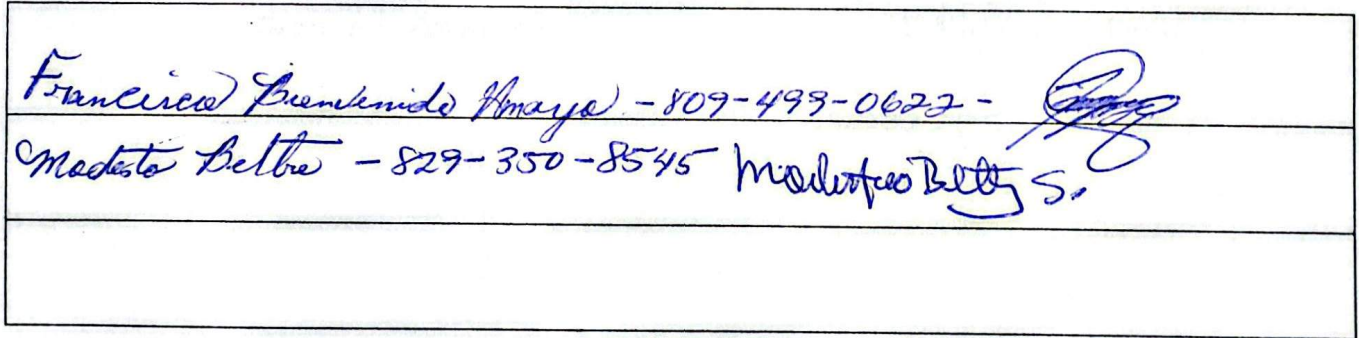 Francisco Bienvenido Amaya - 809-499-0622 -
Modesto Beltre - 829-350-8545 S.